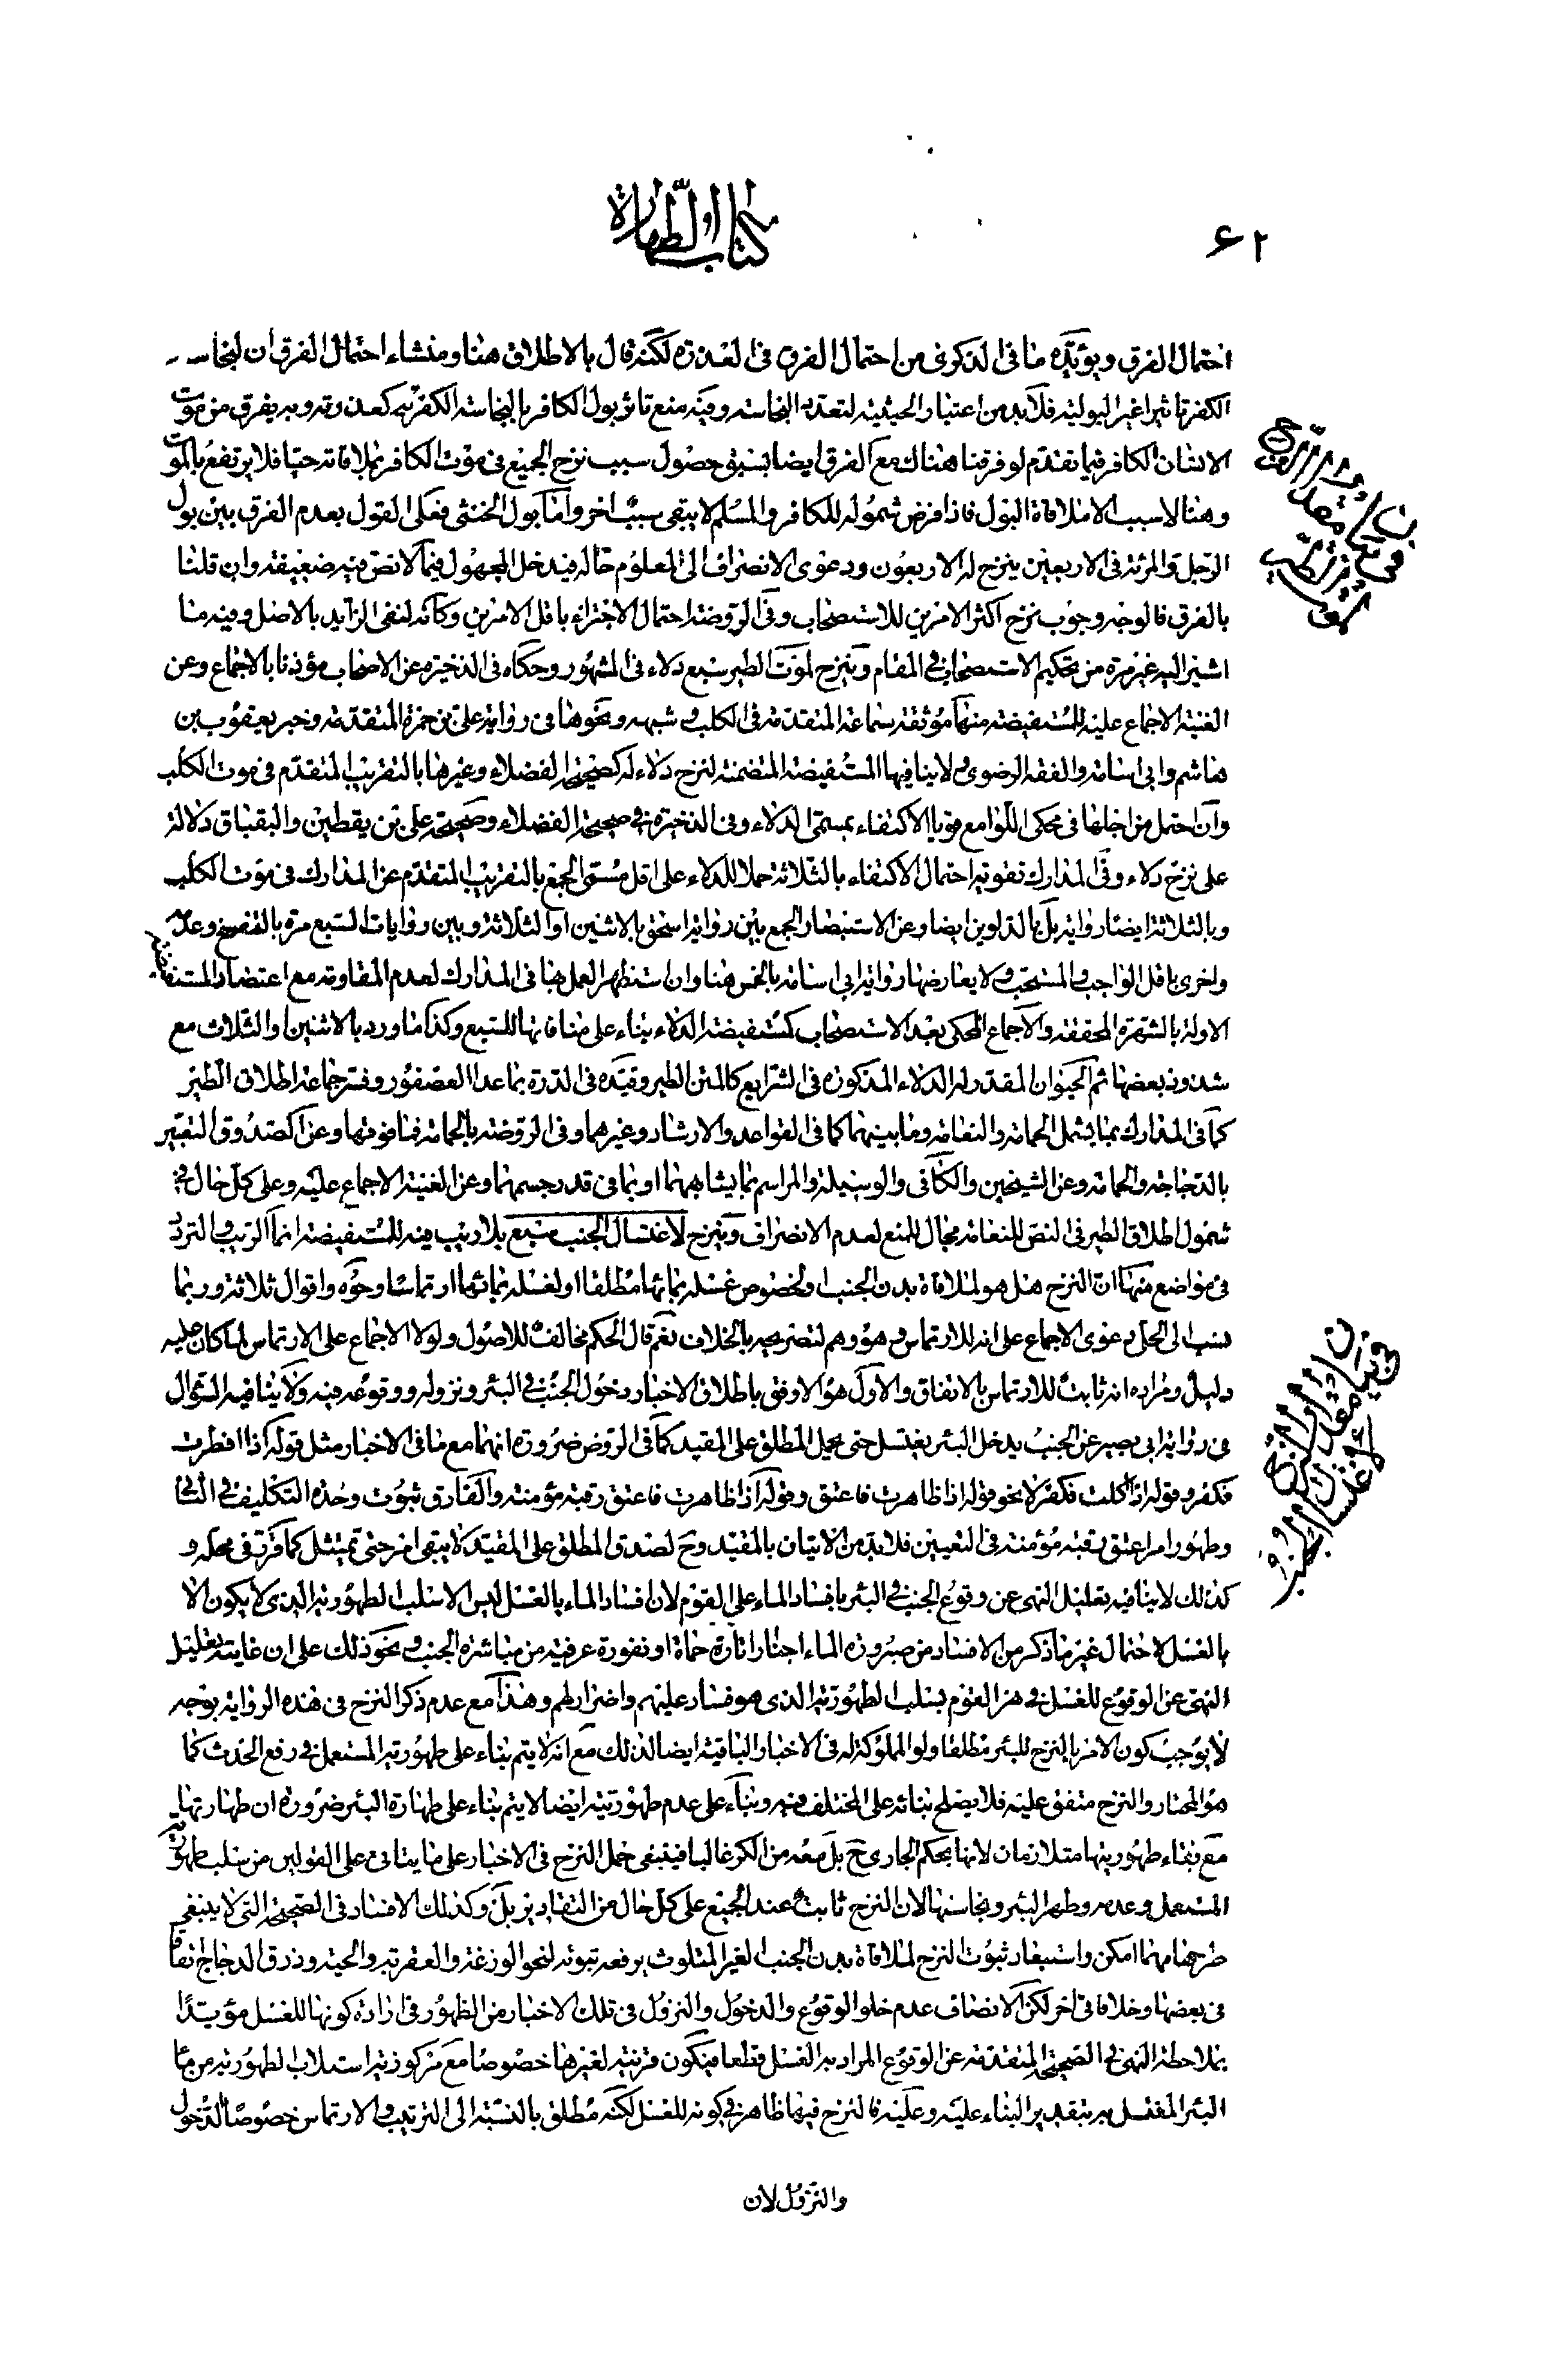 ٦٢
كتاب الطهارة
احتمال الفرق ويؤيّده ما في الذكرى من احتمال الفرق في العذرة لكنّه قال بالاطلاق هنا ومنشاء احتمال الفرق ان لنجاسة
الكفر تاثيرا غير البولية فلا بد من اعتبار الحيثية لتعدد النجاسة وفيه منع تاثر بول الكافر بالنجاسة الكفرية كعذرته وبه يفرق من موت
الانسان الكافر فيما تقدم لو فرقنا هناك مع الفرق ايضا بسبق حصول سبب نزح الجميع في موت الكافر بملاقاته حيا فلا يرتفع بالموت
وهنا لا سبب الا ملاقاة البول فاذا فرض شموله للكافر والمسلم لا يبقى سبب اخر وامّا بول الخنثى فعلى القول بعدم الفرق بين بول
الرجل والمرئة في الاربعين ينزح له الاربعون ودعوى الانصراف الى المعلوم حاله فيدخل المجهول فيما لا نص فيه ضعيفة وان قلنا
بالفرق فالوجه وجوب نزح اكثر الامرين للاستصحاب وفي الروضة احتمال الاجتزاء باقل الامرين وكانه لنفى الزايد بالاصل وفيه ما
اشير اليه غير مرة من تحكيم الاستصحاب في المقام وينزح لموت الطير سبع دلاء في المشهور وحكاه في الذخيرة عن الاصحاب مؤذنا بالاجماع وعن
الغنية الاجماع عليه للمستفيضة منها موثقة سماعة المتقدمة في الكلب وشبهه ونحوها في رواية علي بن حمزة المتقدمة وخبر يعقوب بن
هاشم وابي اسامة والفقه الرضوي ولا ينافيها المستفيضة المتضمنة لنزح دلاء له كصحيحة الفضلاء وغيرها بالتقريب المتقدم في موت الكلب
وان احتمل من اجلها في محكى اللوامع قويا الاكتفاء بمسمى الدلاء وفي الذخيرة في صحيحة الفضلاء وصحيحة علي بن يقطين والبقباق دلالة
على نزح دلاء وفي المدارك تقوية احتمال الاكتفاء بالثلاثة حملا للدلاء على اقل مسمى الجمع بالتقريب المتقدم عن المدارك في موت الكلب
وبالثلاثة ايضا رواية بل بالدلوين ايضا وعن الاستبصار الجمع بين رواية اسحق بالاثنين او الثلاثة وبين روايات السبع مرة بالتفسخ وعدمه
واخرى باقل الواجب والمستحب ولا يعارضها رواية ابي اسامة بالخمس هنا وان استظهر العمل بها في المدارك لعدم المقاومة مع اعتضاد المستفيضة
الاولة بالشهرة المحققة والاجماع المحكى بعد الاستصحاب كمستفيضة الدلاء بناء على منافاتها للسبع وكذا ما ورد بالاثنين والثلاث مع
شذوذ بعضها ثم الحيوان المقدر له الدلاء المذكورة في الشرايع كالمتن الطير وقيّده في الدرة بما عدا العصفور وفسر جماعة اطلاق الطير
كما في المدارك بما يشمل الحمامة والنعامة وما بينهما كما في القواعد والارشاد وغيرهما وفي الروضة بالحمامة فما فوقها وعن الصدوق التعبير
بالدجاجة والحمامة وعن الشيخين والكافي والوسيلة والمراسم بما يشابههما او بما في قدر جسمهما وعن الغنية الاجماع عليه وعلى كل حال في
شمول اطلاق الطير في النص للنعامة مجال للمنع لعدم الانصراف وينزح لاغتسال الجنب سبع بلا ريب فيه للمستفيضة انما الريب والتردد
في مواضع منها ان النزح هل هو لملاقاة بدن الجنب او لخصوص غسله بمائها مطلقا او لغسله بمائها ارتماسا وجوه واقوال ثلاثة وربما
نسب الى الحلي دعوى الاجماع على انه للارتماس وهو وهم لتصريحه بالخلاف نعم قال الحكم مخالف للاصول ولولا الاجماع على الارتماس لما كان عليه
دليل ومراده انه ثابت للارتماس بالاتفاق والاول هو الاوفق باطلاق الاخبار دخول الجنب في البئر ونزوله ووقوعه فيه ولا ينافيه السؤال
في رواية ابي بصير عن الجنب يدخل البئر يغتسل حتى يحمل المطلق على المقيد كما في الروض ضرورة انهما مع ما في الاخبار مثل قوله اذا افطرت
فكفر وقوله اذا اكلت فكفر لا نحو قوله اذا ظاهرت فاعتق وقوله اذا ظاهرت فاعتق رقبة مؤمنة والفارق ثبوت وحدة التكليف في الثاني
وظهور امر اعتق رقبة مؤمنة في التعيين فلا بد من الاتيان بالمقيد وح لصدق المطلق على المقيد لا يبقى امر حتى يمتثل كما قرّر في محله و
كذلك لا ينافيه تعليل النهى عن وقوع الجنب في البئر بافساد الماء على القوم لان افساد الماء بالغسل ليس الا سلب الطهورية الذي لا يكون الا
بالغسل لاحتمال غير ما ذكر من الافساد من صيرورة الماء اجنا باثارة حماة او نفورة عرفية من مباشرة الجنب ونحو ذلك على ان غايته تعليل
النهى عن الوقوع للغسل في ماء القوم بسلب الطهورية الذي هو فساد عليهم واضرار لهم وهذا مع عدم ذكر النزح في هذه الرواية بوجه
لا يوجب كون الامر بالنزح للبئر مطلقا ولو المملوكة له في الاخبار الباقية ايضا لذلك مع انه لا يتم بناء على طهورية المستعمل في رفع الحدث كما
هو المختار والنزح متفق عليه فلا يصلح بنائه على المختلف فيه وبناء على عدم طهوريته ايضا لا يتم بناء على طهارة البئر ضرورة ان طهارتها
مع بقاء طهوريتها متلازمان لانها بحكم الجاري ح بل معه من الكر غالبا فينبغي حمل النزح في الاخبار على ما يتاتى على القولين من سلب طهورية
المستعمل وعدمه وطهر البئر ونجاستها لان النزح ثابت عند الجميع على كل حال من التقادير بل وكذلك الافساد في الصحيحة التي لا ينبغي
طرحها مهما امكن واستبعاد ثبوت النزح لملاقاة بدن الجنب الغير المتلوث يرفعه ثبوته لنحو الوزغة والعقرب والحية وذرق الدجاج اتفاقا
في بعضها وخلافا في اخر لكن الانصاف عدم خلو الوقوع والدخول والنزول في تلك الاخبار من الظهور في ارادة كونها للغسل مؤيّدا
بملاحظة النهى في الصحيحة المتقدمة عن الوقوع المراد به الغسل قطعا فيكون قرينة لغيرها خصوصا مع مركوزية استلاب الطهورية من ماء
البئر المغتسل به بتقدير البناء عليه وعليه فالنزح فيها ظاهر في كونه للغسل لكنه مطلق بالنسبة الى الترتيب والارتماس خصوصا الدخول
والنزول لان